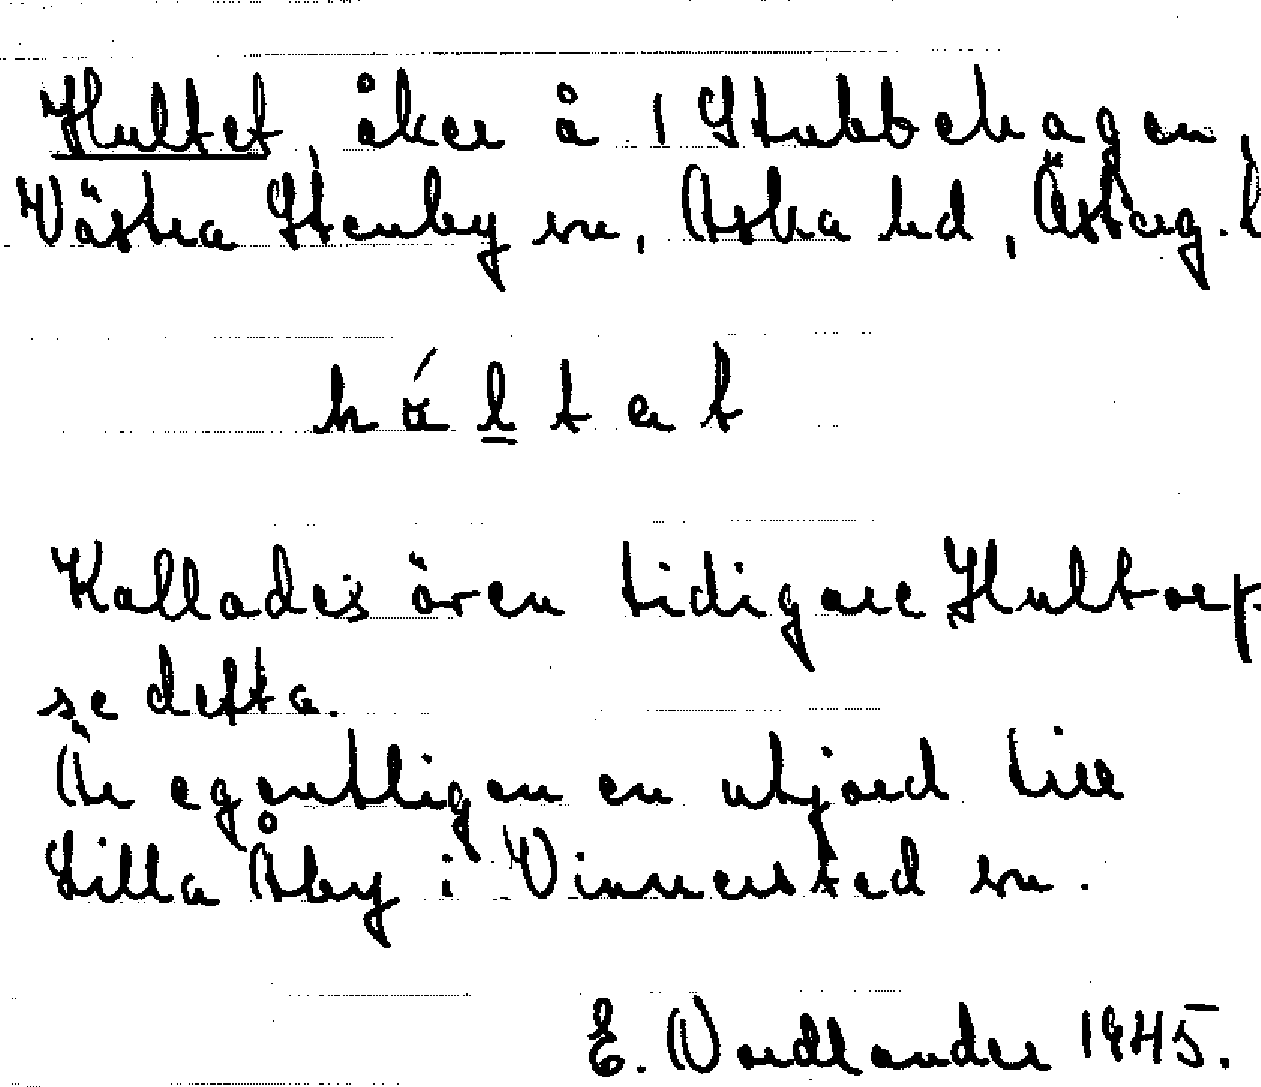 Hultet, åker å 1 Stubbehagen,
Västra Stenby sn, Aska hd, Österg. l
hált et
Kallades även tidigare Hultorp
se detta.
Är egentligen en utjord till
Lilla Åby i Vinnerstad sn.
E. Nordlander 1945.